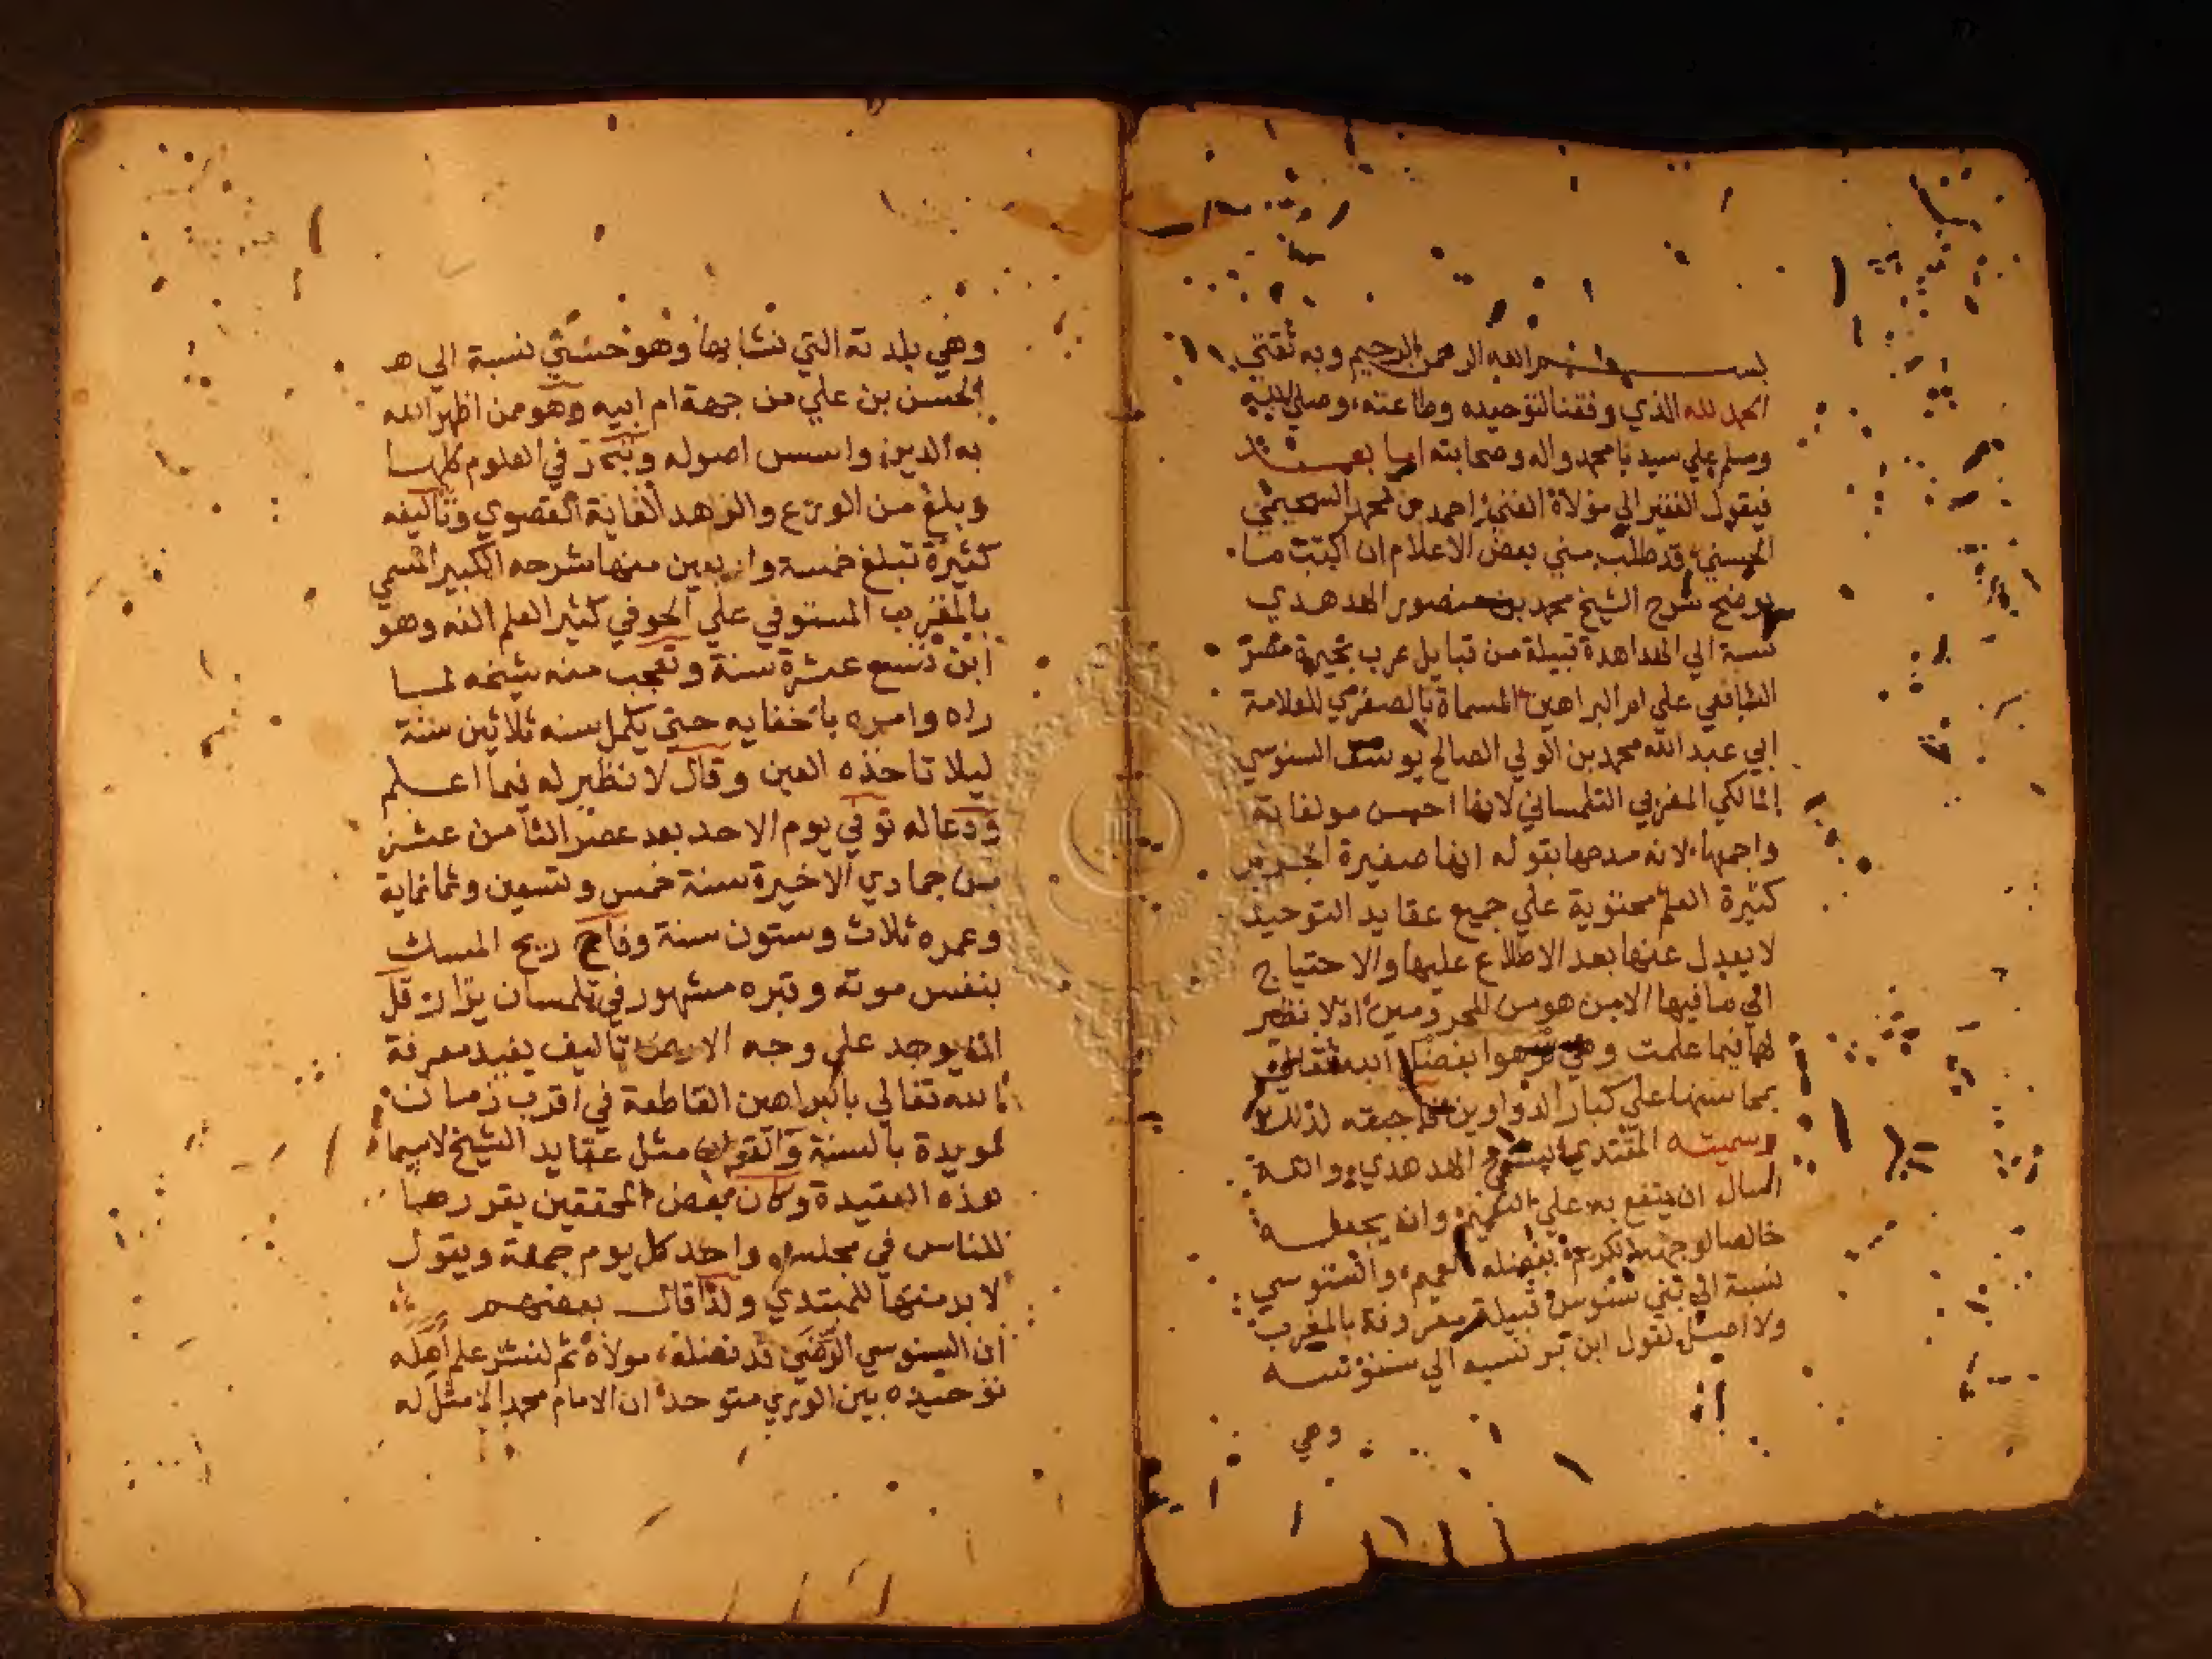 بسم الله الرحمن الرحيم وبه ثقتي
الحمد لله الذي وفقنا لتوحيده وطاعته وصلي الله
وسلم علي سيدنا محمد واله وصحابته اما بعد
فيقول الفقير الي مولاه الغني احمد بن محمد السحيمي
الحسني قد طلب مني بعض الاعلام ان اكتب ما
يوضح شرح الشيخ محمد بن منصور الهدهدي
نسبة الي الهداهدة قبيلة من قبايل عرب بحيرة مصر
الشافعي علي ام البراهين المسماة بالصغري للعلامة
ابي عبد الله محمد بن الولي الصالح يوسف السنوسي
المالكي المغربي التلمساني لانها احسن مولفاته
واجمها لانه مدحها بقوله انها صغيرة الجرم
كثيرة العلم محتوية علي جميع عقايد التوحيد
لا يعدل عنها بعد الاطلاع عليها والاحتياج
الي ما فيها الا من هو من المحرومين اذ لا نظير
لها فيما علمت وهي تزهوا بفضل الله تعالي
بمحاسنها علي كبار الدواوين فاجبته لذلك
وسميته المقتدي بشرح الهدهدي والله
اسال ان ينفع به علي التعميم وان يجعله
خالصا لوجهه الكريم بفضله العميم والسنوسي
نسبة الي بني سنوس قبيلة معروفة بالمغرب
ولا اصل لقول ابن تر نسبه الي سنوسه
وهي
وهي بلدته التي نشا بها وهو حسني نسبة الي
الحسن بن علي من جهة ام ابيه وهو من اظهر الله
به الدين واسس اصوله وتبحر في العلوم كلها
وبلغ من الورع والزهد الغاية القصوي وتاليفه
كثيرة تبلغ خمسة واربعين منها شرحه الكبير المسمي
بالمقرب المستوفي علي الحوفي كثير العلم الفه وهو
ابن تسع عشرة سنة وتعجب منه شيخه لما
راه وامره باخفايه حتي يكمل سنه ثلاثين سنة
ليلا تاخذه العين وقال لا نظير له فيما اعلم
ودعا له توفي يوم الاحد بعد عصر الثامن عشر
من جمادي الاخيرة سنة خمس وتسعين وثمانماية
وعمره ثلاث وستون سنة وفاح ريح المسك
بنفس موته وقبره مشهور في تلمسان يزار قل
ان يوجد علي وجه الارض تاليف يفيد معرفة
الله تعالي بالبراهين القاطعة في اقرب زمان
المويدة بالسنة والقران مثل عقايد الشيخ لاسيما
هذه العقيدة وكان بعض المحققين يقررها
للناس في مجلس واحد كل يوم جمعة ويقول
لا بد منها للمبتدي ولذا قال بعضهم
ان السنوسي الرضي قد فضله مولاه ثم لنشر علم اهله
توحيده بين الوري متوحدا ان الامام محمدا لا مثل له